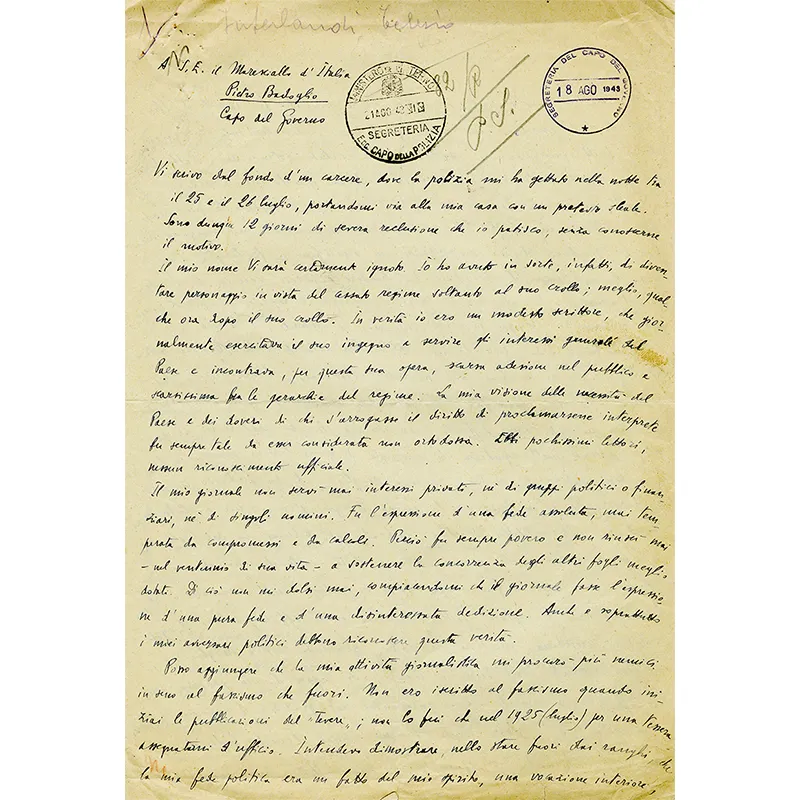 Interlandi Telesio
A S.E. il Maresciallo d'Italia
Pietro Badoglio
Capo del Governo
MINISTERO INTERNO
21 AGO 43
SEGRETERIA
CAPO DELLA POLIZIA
SEGRETERIA DEL CAPO DEL GOVERNO
18 AGO 1943
Vi scrivo dal fondo d'un carcere, dove la polizia mi ha gettato nella notte tra
il 25 e il 26 luglio, portandomi via alla mia casa con un pretesto sleale.
Sono dunque 12 giorni di severa reclusione che io patisco, senza conoscerne
il motivo.
Il mio nome Vi sarà certamente ignoto. Io ho avuto in sorte, infatti, di diven-
tare personaggio in vista del cessato regime soltanto al suo crollo; meglio, qual
che ora dopo il suo crollo. In verità io ero un modesto scrittore, che gior-
nalmente esercitava il suo ingegno a servire gli interessi generali del
Paese e incontrava, per questa sua opera, scarsa adesione nel pubblico e
scarsissima fra le gerarchie del regime. La mia visione delle necessità del
Paese e dei doveri di chi s'arrogasse il diritto di proclamarsene interprete
fu sempre tale da esser considerata non ortodossa. Ebbi pochissimi lettori,
nessun riconoscimento ufficiale.
Il mio giornale non servì mai interessi privati, nè di gruppi politici o finan-
ziari, nè di singoli uomini. Fu l'espressione d'una fede assoluta, mai tem-
perata da compromessi e da calcoli. Perciò fu sempre povero e non riuscì mai
- nel ventennio di sua vita - a sostenere la concorrenza degli altri fogli meglio
dotati. Di ciò non mi dolsi mai, compiacendomi che il giornale fosse l'espressio-
ne d'una pura fede e d'una disinteressata dedizione. Anche e soprattutto
i miei avversari politici debbono riconoscere questa verità.
Posso aggiungere che la mia attività giornalistica mi procurò più nemici
in seno al fascismo che fuori. Non ero iscritto al fascismo quando ini-
ziai le pubblicazioni del "Tevere"; non lo fui che nel 1925 (luglio) per una tessera
assegnatami d'ufficio. Intendevo dimostrare, nello stare fuori dai ranghi, che
la mia fede politica era un fatto del mio spirito, una vocazione interiore,